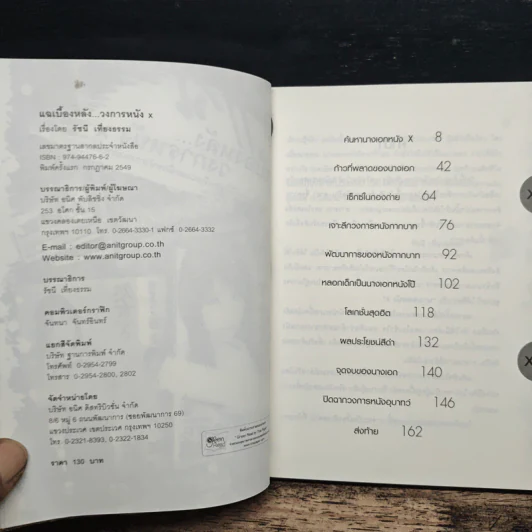 แฉเบื้องหลัง...วงการหนัง x
เรื่องโดย รัชนี เที่ยงธรรม
เลขมาตรฐานสากลประจำหนังสือ
ISBN : 974-94476-6-2
พิมพ์ครั้งแรก กรกฎาคม 2549
บรรณาธิการ/ผู้พิมพ์/ผู้โฆษณา
บริษัท อนิศ พับลิชชิ่ง จำกัด
253 อโศก ชั้น 16
แขวงคลองเตยเหนือ เขตวัฒนา
กรุงเทพฯ 10110. โทร. 0-2664-3330-1 แฟกซ์ 0-2664-3332
E-mail : editor@anitgroup.co.th
Website : www.anitgroup.co.th
บรรณาธิการ
รัชนี เที่ยงธรรม
คอมพิวเตอร์กราฟิก
จันทนา จันทร์อินทร์
แยกสีจัดพิมพ์
บริษัท ฐานการพิมพ์ จำกัด
โทรศัพท์ 0-2954-2799
โทรสาร 0-2954-2800, 2802
จัดจำหน่ายโดย
บริษัท อนิศ ดิสทริบิวชั่น จำกัด
8/6 หมู่ 6 ถนนพัฒนาการ (ซอยพัฒนาการ 69)
แขวงประเวศ เขตประเวศ กรุงเทพฯ 10250
โทร. 0-2321-8393, 0-2322-1834
ราคา 130 บาท
ค้นหานางเอกหนัง X 8
ก้าวที่พลาดของนางเอก 42
เซ็กซ์ในกองถ่าย 64
เจาะลึกวงการหนังภาคบาก 76
พัฒนาการของหนังภาคบาก 92
หลอกเด็กเป็นนางเอกหนังโป๊ 102
โลเกชั่นสุดฮิต 118
ผลประโยชน์สีดำ 132
จุดจบของนางเอก 140
ปิดฉากวงการหนังอุบาทว์ 146
ส่งท้าย 162